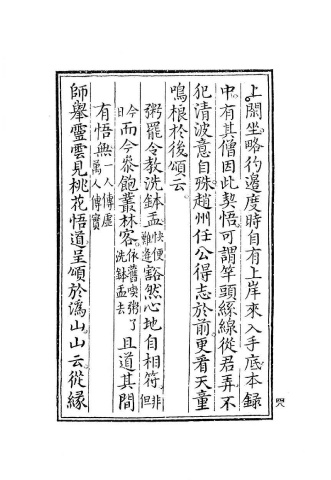 上閑坐。略彴邊度時。自有上岸來入手底。本錄
中。有其僧因此契悟。可謂竿頭絲線從君弄。不
犯清波意自殊。趙州任公得志於前。更看天童
鳴桹於後。頌云。
粥罷令教洗鉢盂快便難逢豁然心地自相符非但
今日而今叅飽叢林客依舊喫粥了洗鉢盂去且道其間
有悟無一人傳虛萬人傳實
師舉靈雲見桃花悟道。呈頌於溈山。山云。從緣